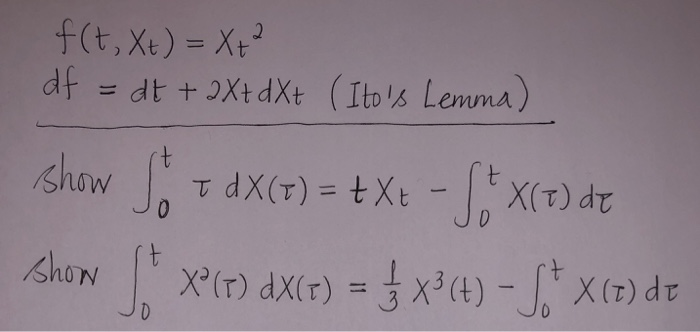 f(t, Xt) = Xt²
df = dt + 2Xt dXt (Ito's Lemma)
show ∫₀ᵗ τ dX(τ) = t Xt - ∫₀ᵗ X(τ) dτ
show ∫₀ᵗ X²(τ) dX(τ) = 1/3 X³(t) - ∫₀ᵗ X(τ) dτ